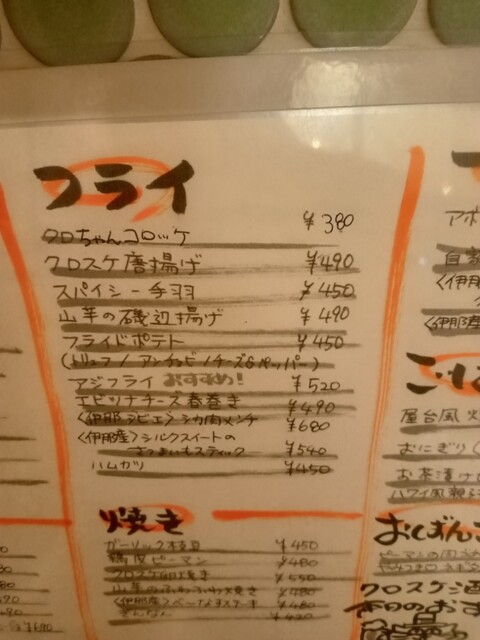 フライ
クロちゃんコロッケ ¥380
クロスケ唐揚げ ¥490
スパイシー手羽 ¥450
山芋の磯辺揚げ ¥490
フライドポテト ¥450
(トリュフ/アンチョビ/チーズ&ペッパー)
アジフライ おすすめ! ¥520
エビツナチーズ春巻き ¥490
〈伊那ジビエ〉シカ肉メンチ ¥680
〈伊那産〉シルクスイートの
さつまいもスティック ¥540
ハムカツ ¥450
焼き
ガーリック枝豆 ¥450
鶏皮ピーマン ¥480
クロスケ卵焼き ¥550
山芋のふわふわ焼き ¥480
〈伊那産〉
ぎんなん ¥420
アボ
自家
〈伊
〈伊那産
ごは
屋台風
おにぎり
お茶漬け
ハワイ風
おばんざ
クロスケ酒
本日のおす
¥690